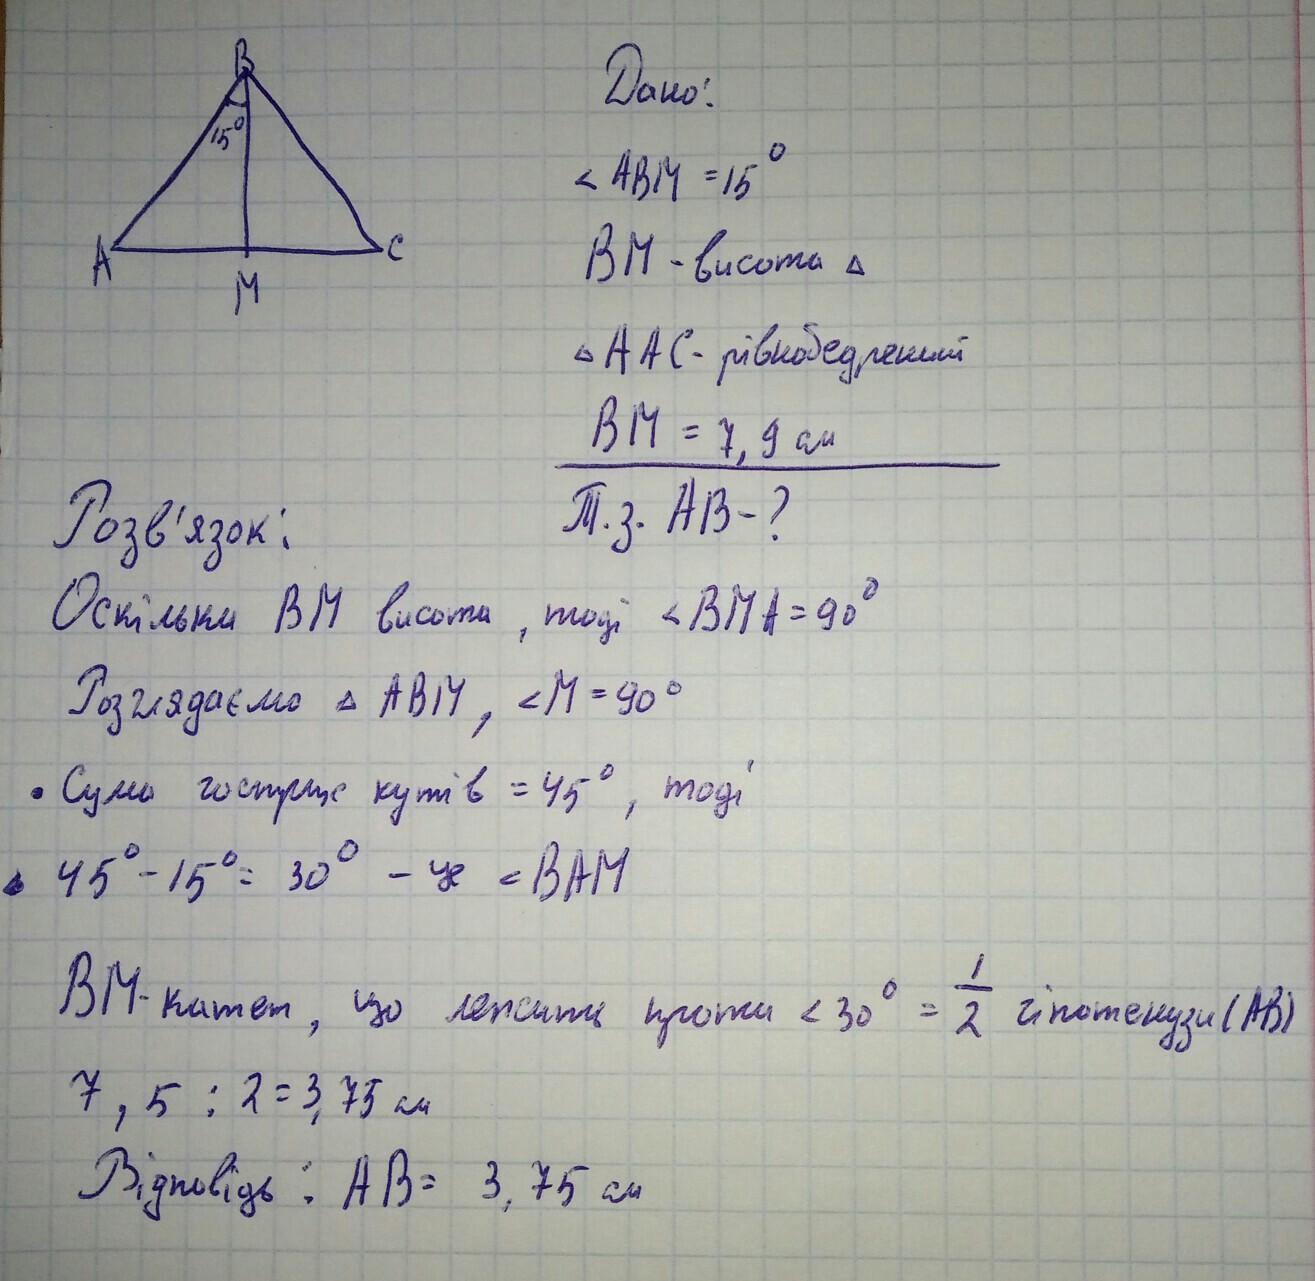 B
15°
A
C
M
Дано:
< ABM = 15°
BM - висота △
△ AAC - рівнобедрений
BM = 7,9 см
Т.з. AB - ?
Розв'язок:
Оскільки BM висота, тоді < BMA = 90°
Розглядаємо △ ABM, < M = 90°
• Сума гострих кутів = 45°, тоді
• 45° - 15° = 30° - це < BAM
BM - катет, що лежить проти < 30° = 1/2 гіпотенузи (AB)
7,5 : 2 = 3,75 см
Відповідь: AB = 3,75 см